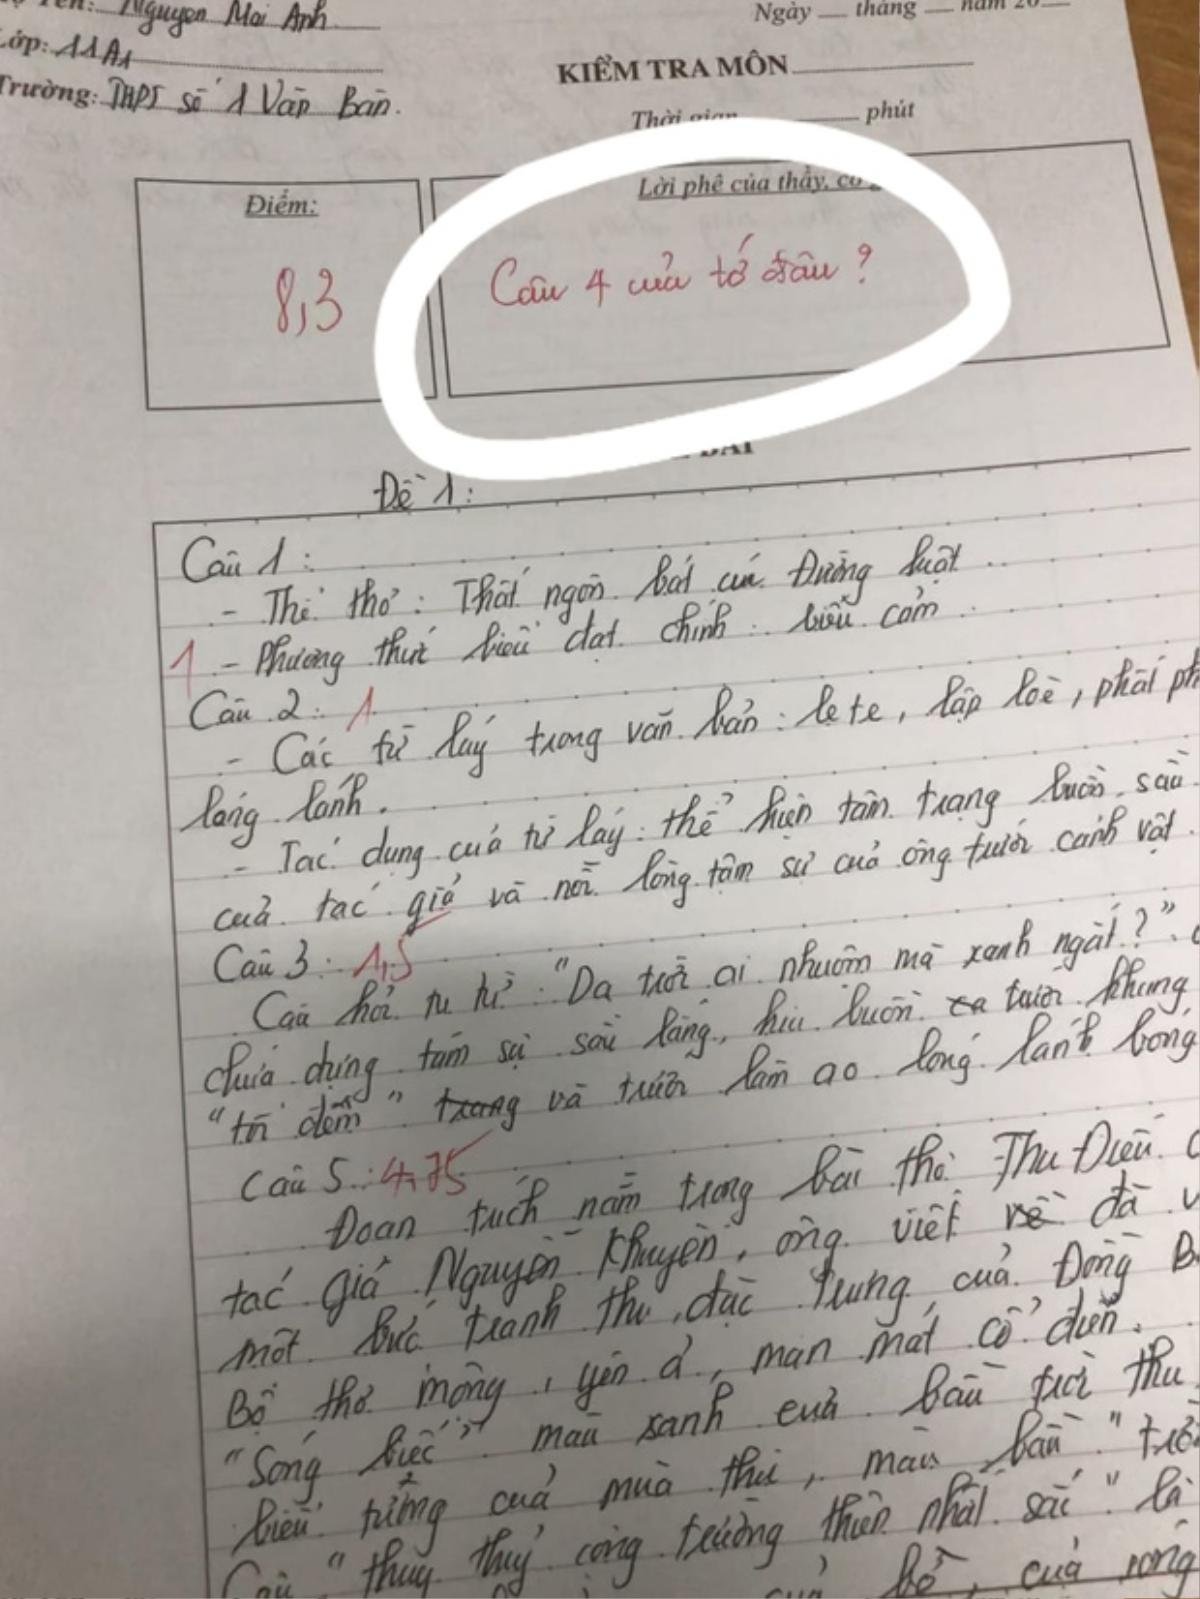 Tên: Nguyễn Mai Anh
Lớp: 11A1
Trường: THPT số 1 Văn Bàn.
Ngày tháng năm 20
KIỂM TRA MÔN
Thời gian phút
Điểm:
8,3
Lời phê của thầy, cô
Câu 4 của tớ đâu ?
BÀI
Đề 1:
Câu 1:
- Thể thơ: Thất ngôn bát cú Đường luật
1 - Phương thức biểu đạt chính: biểu cảm
Câu 2: 1
- Các từ láy trong văn bản: le te, lập loè, phất ph
lóng lánh.
- Tác dụng của từ láy: thể hiện tâm trạng buồn sầu
của tác giả và nỗi lòng tâm sự của ông trước cảnh vật
Câu 3: 1,5
Câu hỏi tu từ: "Da trời ai nhuộm mà xanh ngắt?"
chứa đựng tâm sự sâu lắng, hiu buồn trước khung
"tối đêm" và trước làn ao lóng lánh bóng
Câu 5: 4,75
Đoạn trích nằm trong bài thơ Thu Điếu
tác giả Nguyễn Khuyến, ông viết đã v
một bức tranh thu đặc trưng của Đồng B
Bộ thơ mộng, yên ả, man mát cổ điển.
"Sóng biếc" màu xanh của bầu trời thu
biểu tượng của mùa thu, màu bầu "trời
Câu "thuỷ cộng trường thiên nhất sắc" là